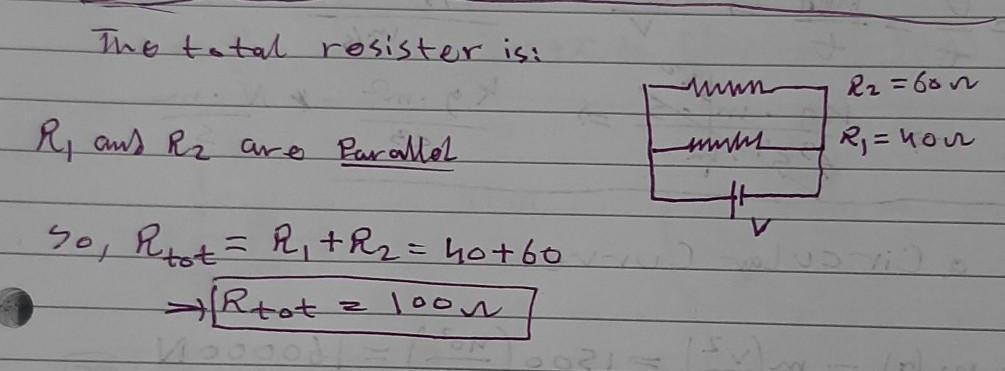 The total resister is:
R2 = 60Ω
R1 = 40Ω
R1 and R2 are Parallel
V
So, Rtot = R1 + R2 = 40+60
⇒ Rtot = 100Ω